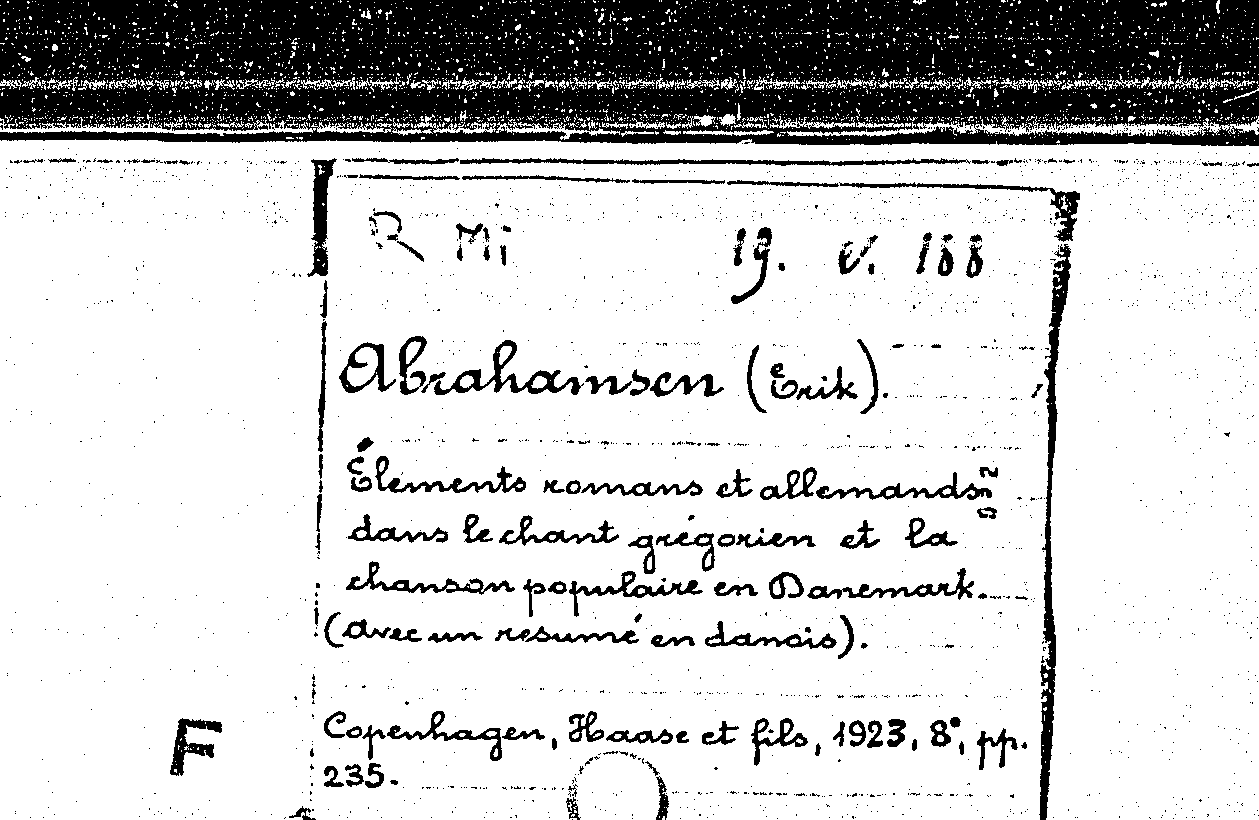 R Mi 19. V. 188
Abrahamsen (Erik).
Élements romans et allemands
dans le chant grégorien et la
chanson populaire en Danemark.
(Avec un resumé en danois).
Copenhagen, Haase et fils, 1923, 8°, pp.
235.
F